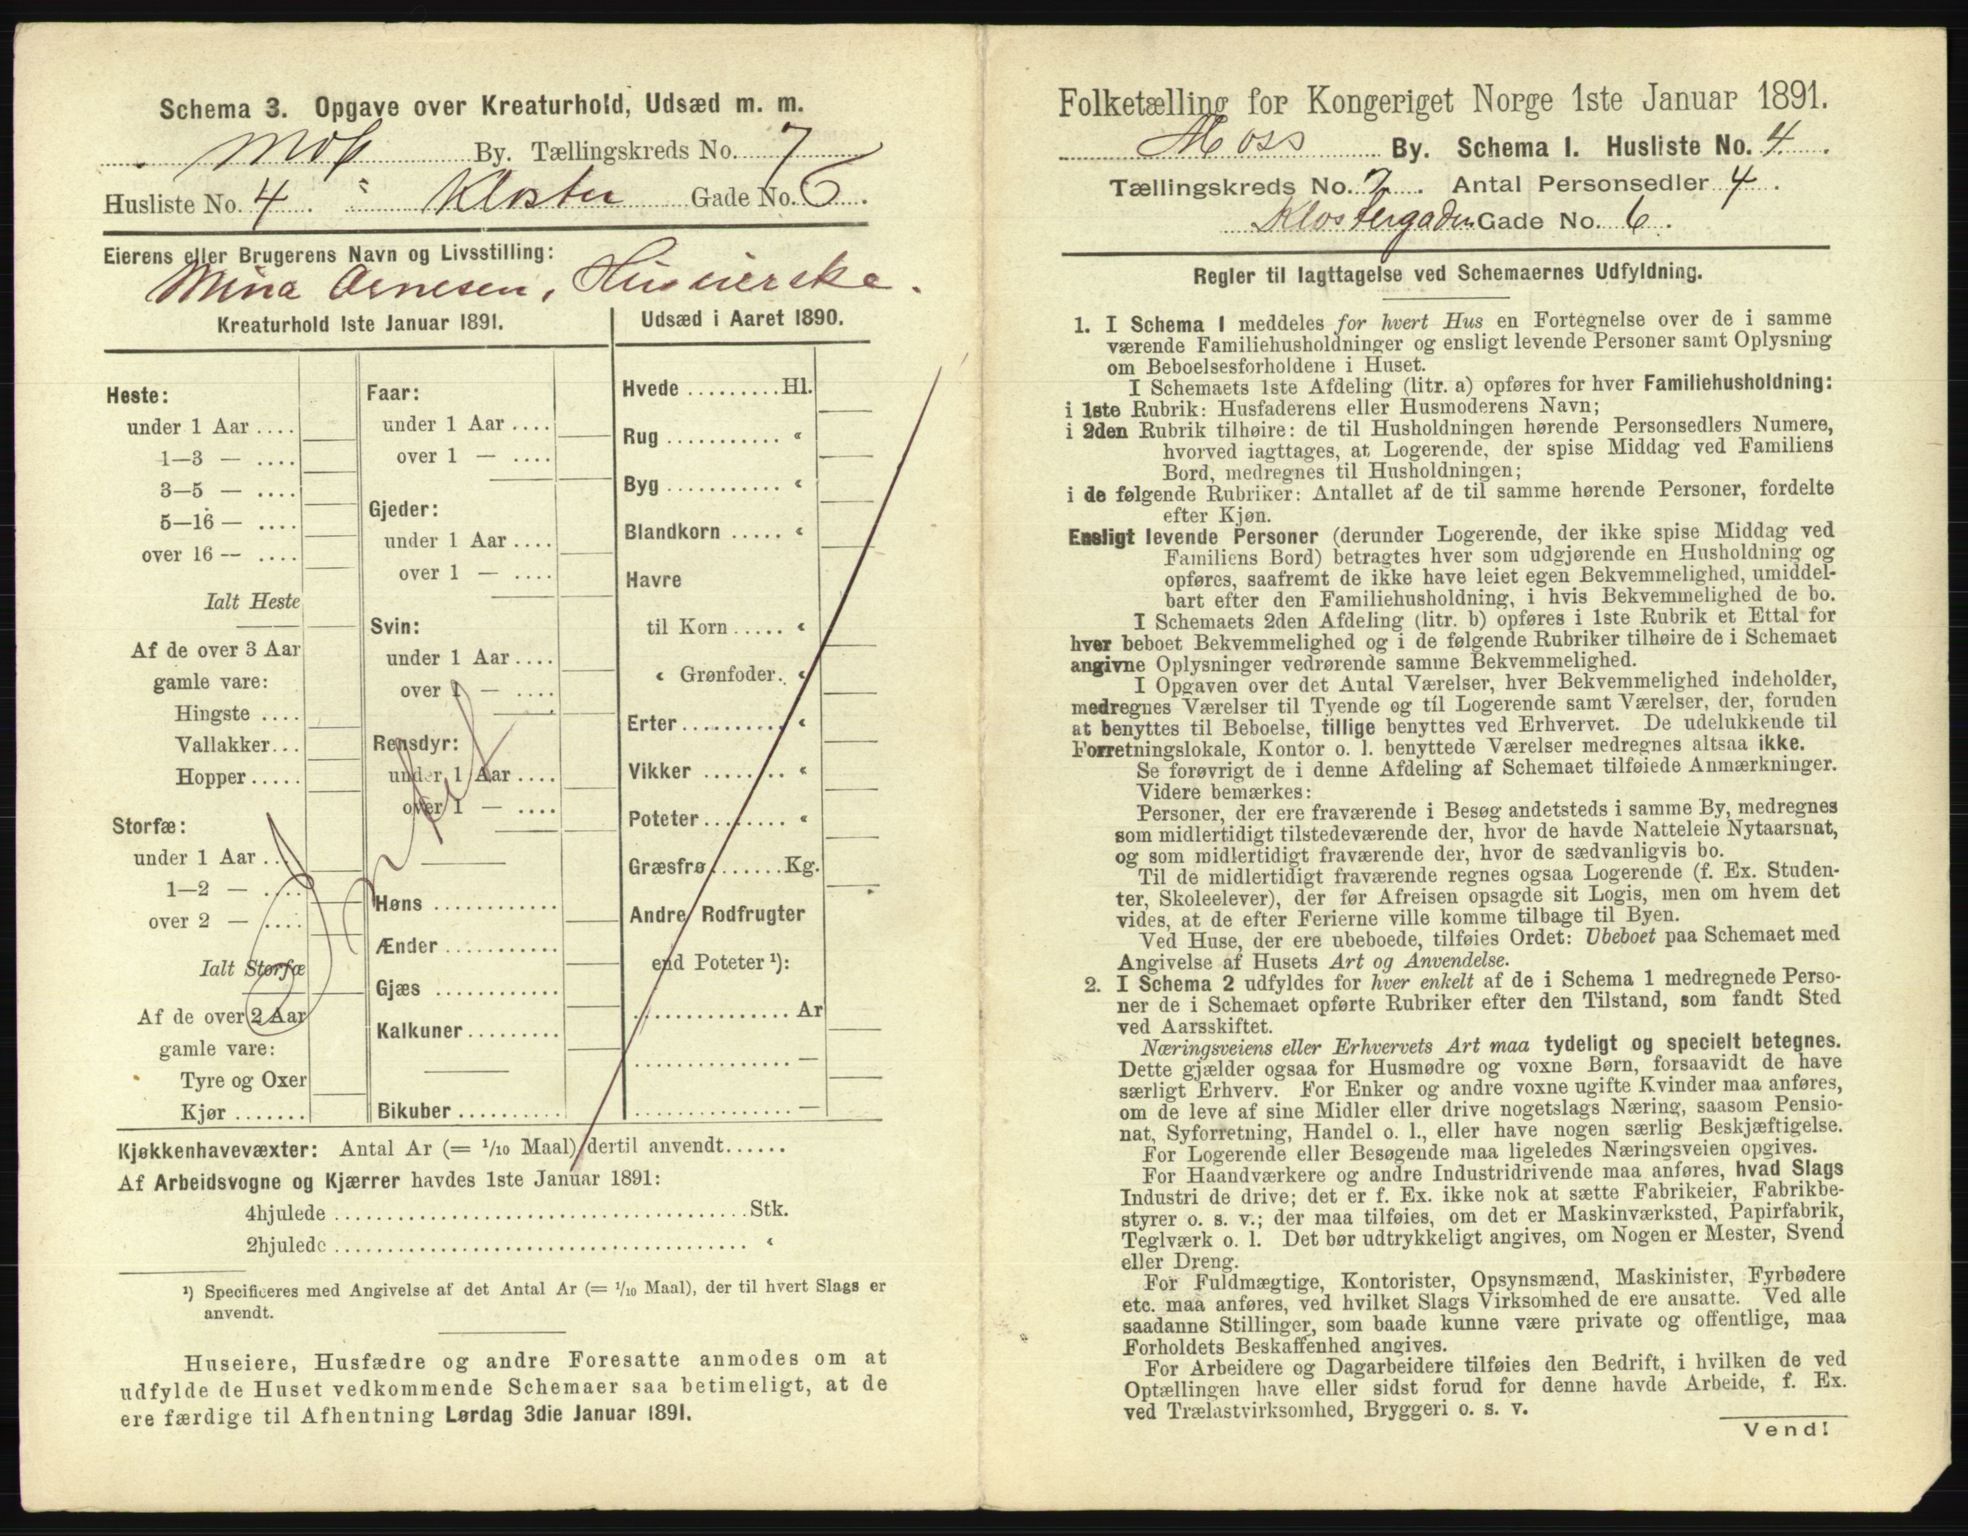 Schema 3. Opgave over Kreaturhold, Udsæd m. m.
Moss By. Tællingskreds No. 7
Husliste No. 4 . Kloster Gade No. 6 .
Eierens eller Brugerens Navn og Livsstilling:
Mina Arnesen, Huseierske.
Kreaturhold 1ste Januar 1891.
Heste:
under 1 Aar ....
1—3 — ....
3—5 — ....
5—16 — ....
over 16 — ....
Ialt Heste
Af de over 3 Aar
gamle vare:
Hingste ....
Vallakker...
Hopper.....
Storfæ:
under 1 Aar ...
1—2 — ....
over 2 — ....
Ialt Storfæ
Af de over 2 Aar
gamle vare:
Tyre og Oxer
Kjør .......
Faar:
under 1 Aar ....
over 1 — ....
Gjeder:
under 1 Aar ....
over 1 — ....
Svin:
under 1 Aar ....
over 1 — ....
Rensdyr:
under 1 Aar ....
over 1 — ....
Høns ............
Ænder ...........
Gjæs ............
Kalkuner .........
Bikuber ..........
Udsæd i Aaret 1890.
Hvede .........Hl.
Rug ........... “
Byg ........... “
Blandkorn ..... “
Havre
til Korn ..... “
“ Grønfoder. “
Erter ......... “
Vikker ........ “
Poteter........ “
Græsfrø.......Kg.
Andre Rodfrugter
end Poteter ¹):
............... Ar
............... —
............... —
Kjøkkenhavevæxter: Antal Ar (= 1/10 Maal) dertil anvendt......
Af Arbeidsvogne og Kjærrer havdes 1ste Januar 1891:
4hjulede ........................................Stk.
2hjulede ........................................ “
¹) Specificeres med Angivelse af det Antal Ar (= 1/10 Maal), der til hvert Slags er
anvendt.
Huseiere, Husfædre og andre Foresatte anmodes om at
udfylde de Huset vedkommende Schemaer saa betimeligt, at de
ere færdige til Afhentning Lørdag 3die Januar 1891.
Folketælling for Kongeriget Norge 1ste Januar 1891.
Moss By. Schema I. Husliste No. 4 .
Tællingskreds No. 7 . Antal Personsedler 4 .
Klostergaden Gade No. 6 .
Regler til Iagttagelse ved Schemaernes Udfyldning.
1. I Schema 1 meddeles for hvert Hus en Fortegnelse over de i samme
værende Familiehusholdninger og ensligt levende Personer samt Oplysning
om Beboelsesforholdene i Huset.
I Schemaets 1ste Afdeling (litr. a) opføres for hver Familiehusholdning:
i 1ste Rubrik: Husfaderens eller Husmoderens Navn;
i 2den Rubrik tilhøire: de til Husholdningen hørende Personsedlers Numere,
hvorved iagttages, at Logerende, der spise Middag ved Familiens
Bord, medregnes til Husholdningen;
i de følgende Rubriker: Antallet af de til samme hørende Personer, fordelte
efter Kjøn.
Ensligt levende Personer (derunder Logerende, der ikke spise Middag ved
Familiens Bord) betragtes hver som udgjørende en Husholdning og
opføres, saafremt de ikke have leiet egen Bekvemmelighed, umiddel-
bart efter den Familiehusholdning, i hvis Bekvemmelighed de bo.
I Schemaets 2den Afdeling (litr. b) opføres i 1ste Rubrik et Ettal for
hver beboet Bekvemmelighed og i de følgende Rubriker tilhøire de i Schemaet
angivne Oplysninger vedrørende samme Bekvemmelighed.
I Opgaven over det Antal Værelser, hver Bekvemmelighed indeholder,
medregnes Værelser til Tyende og til Logerende samt Værelser, der, foruden
at benyttes til Beboelse, tillige benyttes ved Erhvervet. De udelukkende til
Forretningslokale, Kontor o. l. benyttede Værelser medregnes altsaa ikke.
Se forøvrigt de i denne Afdeling af Schemaet tilføiede Anmærkninger.
Videre bemærkes:
Personer, der ere fraværende i Besøg andetsteds i samme By, medregnes
som midlertidigt tilstedeværende der, hvor de havde Natteleie Nytaarsnat,
og som midlertidigt fraværende der, hvor de sædvanligvis bo.
Til de midlertidigt fraværende regnes ogsaa Logerende (f. Ex. Studen-
ter, Skoleelever), der før Afreisen opsagde sit Logis, men om hvem det
vides, at de efter Ferierne ville komme tilbage til Byen.
Ved Huse, der ere ubeboede, tilføies Ordet: Ubeboet paa Schemaet med
Angivelse af Husets Art og Anvendelse.
2. I Schema 2 udfyldes for hver enkelt af de i Schema 1 medregnede Perso-
ner de i Schemaet opførte Rubriker efter den Tilstand, som fandt Sted
ved Aarsskiftet.
Næringsveiens eller Erhvervets Art maa tydeligt og specielt betegnes.
Dette gjælder ogsaa for Husmødre og voxne Børn, forsaavidt de have
særligt Erhverv. For Enker og andre voxne ugifte Kvinder maa anføres,
om de leve af sine Midler eller drive nogetslags Næring, saasom Pensio-
nat, Syforretning, Handel o. l., eller have nogen særlig Beskjæftigelse.
For Logerende eller Besøgende maa ligeledes Næringsveien opgives.
For Haandværkere og andre Industridrivende maa anføres, hvad Slags
Industri de drive; det er f. Ex. ikke nok at sætte Fabrikeier, Fabrikbe-
styrer o. s. v.; der maa tilføies, om det er Maskinværksted, Papirfabrik,
Teglværk o. l. Det bør udtrykkeligt angives, om Nogen er Mester, Svend
eller Dreng.
For Fuldmægtige, Kontorister, Opsynsmænd, Maskinister, Fyrbødere
etc. maa anføres, ved hvilket Slags Virksomhed de ere ansatte. Ved alle
saadanne Stillinger, som baade kunne være private og offentlige, maa
Forholdets Beskaffenhed angives.
For Arbeidere og Dagarbeidere tilføies den Bedrift, i hvilken de ved
Optællingen have eller sidst forud for denne havde Arbeide, f. Ex.
ved Trælastvirksomhed, Bryggeri o. s. v.
Vend!